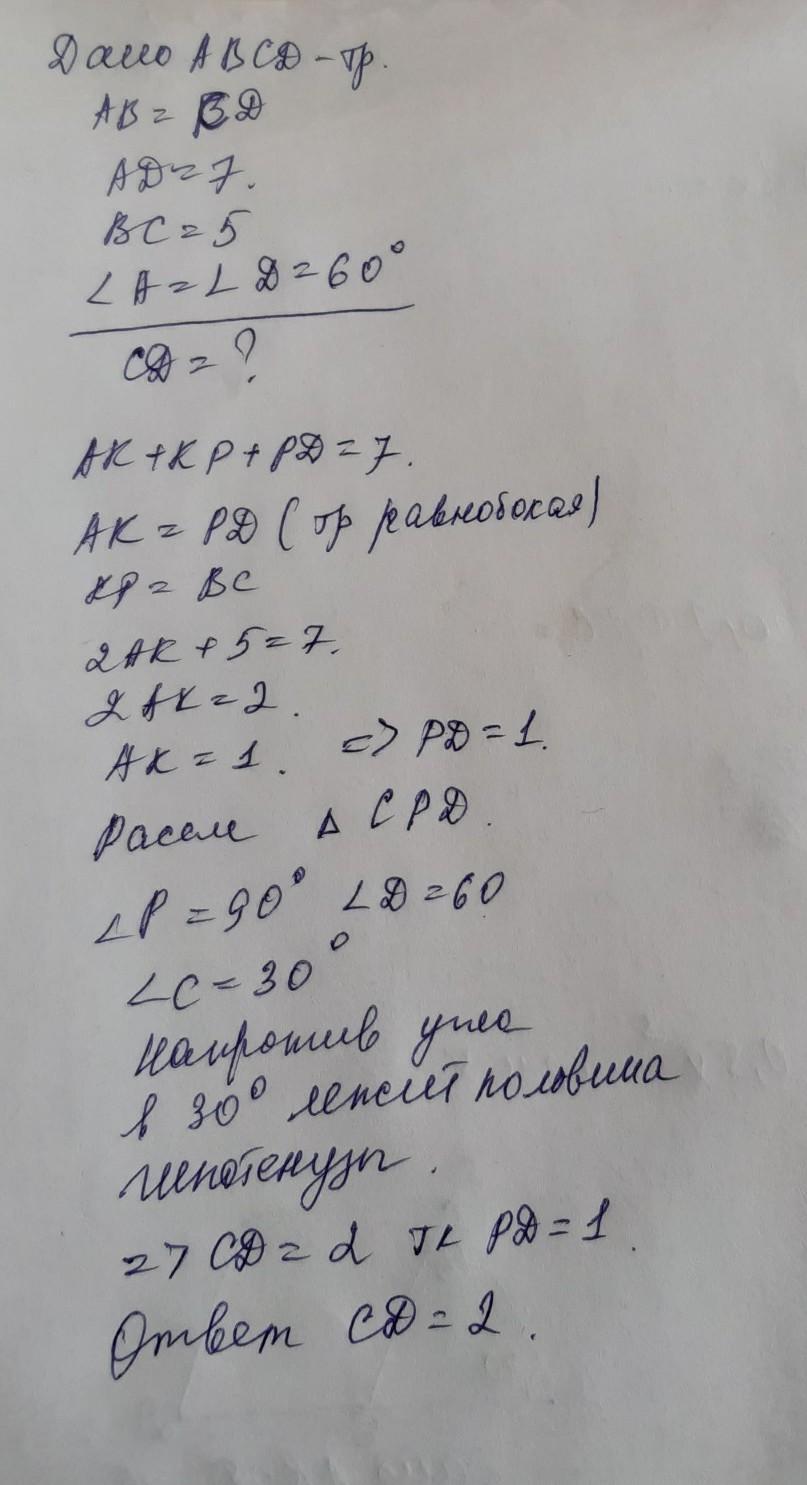 Дано ABCD - тр.
AB = CD
AD = 7.
BC = 5
∠A = ∠D = 60°
CD = ?
AK + KP + PD = 7.
AK = PD ( тр равнобокая)
KP = BC
2AK + 5 = 7.
2AK = 2.
AK = 1. => PD = 1.
Рассм Δ CPD.
∠P = 90° ∠D = 60
∠C = 30°
Напротив угла
в 30° лежит половина
гипотенузы.
=> CD = 2 тк PD = 1.
Ответ CD = 2.